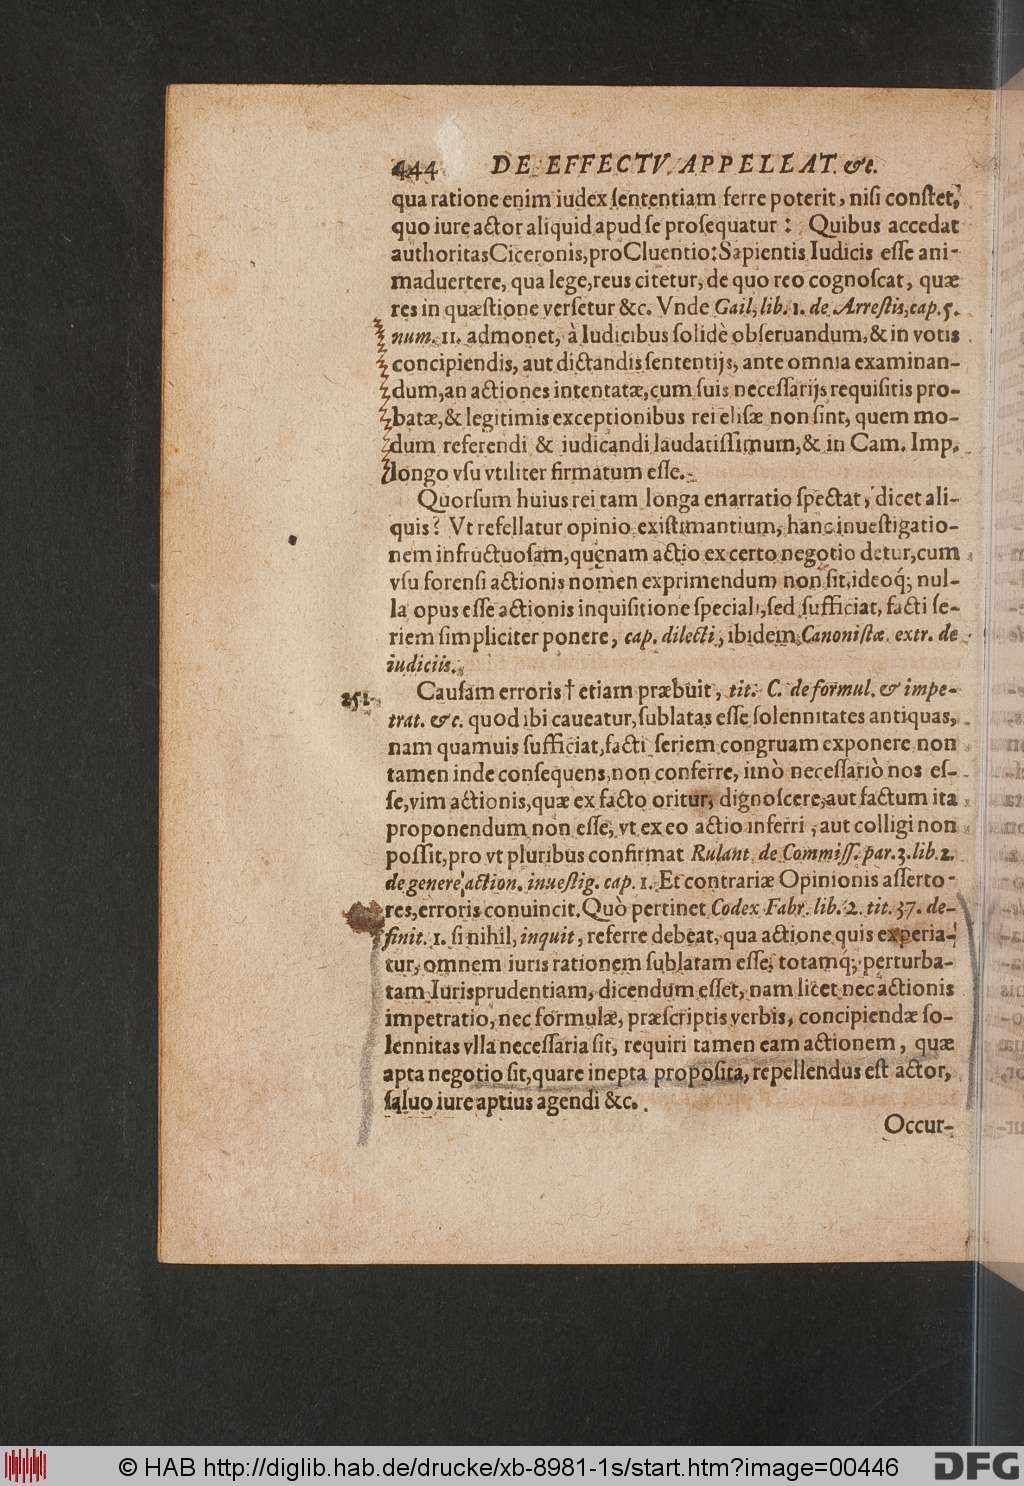 444 DE EFFECTV APPELEAT. &c.
qua ratione enim iudex ſententiam ferre poterit, niſi conſtet,
quo iure actor aliquid apud ſe proſequatur: Quibus accedat
authoritas Ciceronis, pro Cluentio: Sapientis Iudicis eſſe ani-
maduertere, qua lege, reus citetur, de quo reo cognoſcat, quæ
res in quæſtione verſetur &c. Vnde Gail, lib. 1. de Arreſtis, cap. 5.
num. 11. admonet, à Iudicibus ſolidè obſeruandum, & in votis
concipiendis, aut dictandis ſententijs, ante omnia examinan-
dum, an actiones intentatæ, cum ſuis neceſſarijs requiſitis pro-
batæ, & legitimis exceptionibus rei eliſæ non ſint, quem mo-
dum referendi & iudicandi laudatiſſimum, & in Cam. Imp.
longo vſu vtiliter firmatum eſſe.
Quorſum huius rei tam longa enarratio ſpectat, dicet ali-
quis? Vt refellatur opinio exiſtimantium, hanc inueſtigatio-
nem infructuoſam, quænam actio ex certo negotio detur, cum
vſu forenſi actionis nomen exprimendum non ſit, ideoq́; nul-
la opus eſſe actionis inquiſitione ſpeciali, ſed ſufficiat, facti ſe-
riem ſimpliciter ponere, cap. dilecti, ibidem Canoniſtæ. extr. de
iudiciis.
251. Cauſam erroris † etiam præbuit, tit. C. de formul. & impe-
trat. &c. quod ibi caueatur, ſublatas eſſe ſolennitates antiquas,
nam quamuis ſufficiat, facti ſeriem congruam exponere non
tamen inde conſequens, non conferre, imò neceſſariò nos eſ-
ſe, vim actionis, quæ ex facto oritur, dignoſcere, aut factum ita
proponendum non eſſe, vt ex eo actio inferri, aut colligi non
poſſit, pro vt pluribus confirmat Rulant. de Commiſſ. par. 3. lib. 2.
de genere action. inueſtig. cap. 1. Et contrariæ Opinionis aſſerto-
res, erroris conuincit. Quò pertinet Codex Fabr. lib. 2. tit. 37. de-
finit. 1. ſi nihil, inquit, referre debeat, qua actione quis experia-
tur, omnem iuris rationem ſublatam eſſe, totamq́; perturba-
tam Iurisprudentiam, dicendum eſſet, nam licet nec actionis
impetratio, nec formulæ, præſcriptis verbis, concipiendæ ſo-
lennitas vlla neceſſaria ſit, requiri tamen eam actionem, quæ
apta negotio ſit, quare inepta propoſita, repellendus eſt actor,
ſaluo iure aptius agendi &c.
Occur-
© HAB http://diglib.hab.de/drucke/xb-8981-1s/start.htm?image=00446
DFG